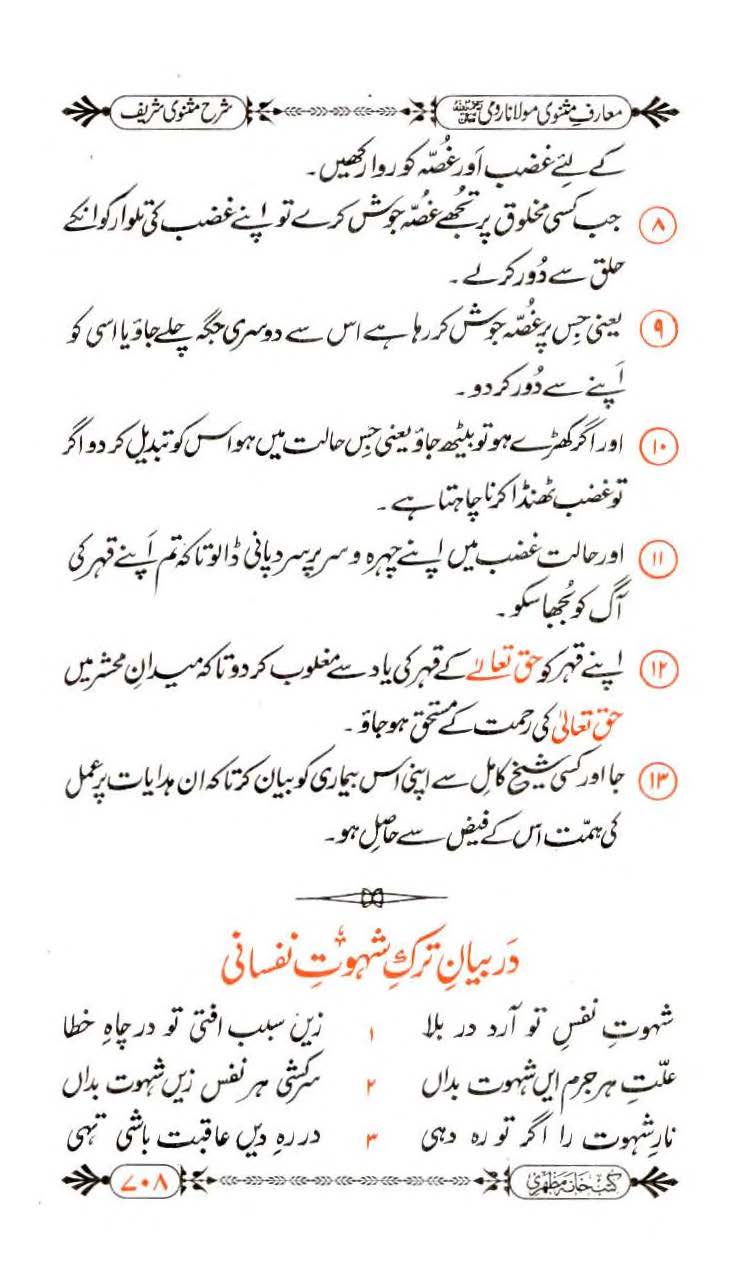 معارفِ مثنوی مولانا رومی شرح مثنوی شریف
کے لئے غضب اَور غُصّہ کو روا رکھیں۔
۸ جب کسی مخلوق پر تجھے غصّہ جوش کرے تو اپنے غضب کی تلوار کو انکے
حلق سے دُور کرلے۔
۹ یعنی جِس پر غصّہ جوش کر رہا ہے اس سے دوسری جگہ چلے جاؤ یا اسی کو
اَپنے سے دُور کردو۔
۱۰ اور اگر کھڑے ہو تو بیٹھ جاؤ یعنی جِس حالت میں ہو اس کو تبدیل کر دو اگر
تو غضب ٹھنڈا کرنا چاہتا ہے۔
۱۱ اور حالت غضب میں اپنے چہرہ و سر پر سرد پانی ڈالو تاکہ تم اَپنے قہر کی
آگ کو بُجھا سکو۔
۱۲ اپنے قہر کو حق تعالےٰ کے قہر کی یاد سے مغلوب کر دو تاکہ میدانِ محشر میں
حق تعالیٰ کی رحمت کے مستحق ہو جاؤ۔
۱۳ جا اور کسی شیخ کامِل سے اپنی اس بیماری کو بیان کر تاکہ ان ہدایات پر عمل
کی ہمّت اس کے فیض سے حاصِل ہو۔
دَر بیانِ ترکِ شہوتِ نفسانی
شہوتِ نفسِ تو آرد در بلا ۱ زیں سبب افتی تو در چاہِ خطا
علّتِ ہر جرم ایں شہوت بداں ۲ سرکشی ہر نفس زیں شہوت بداں
نارِ شہوت را اگر تو رہ دہی ۳ در رہِ دیں عاقبت باشی تہی
کتب خانہ مظہری ۷۰۸